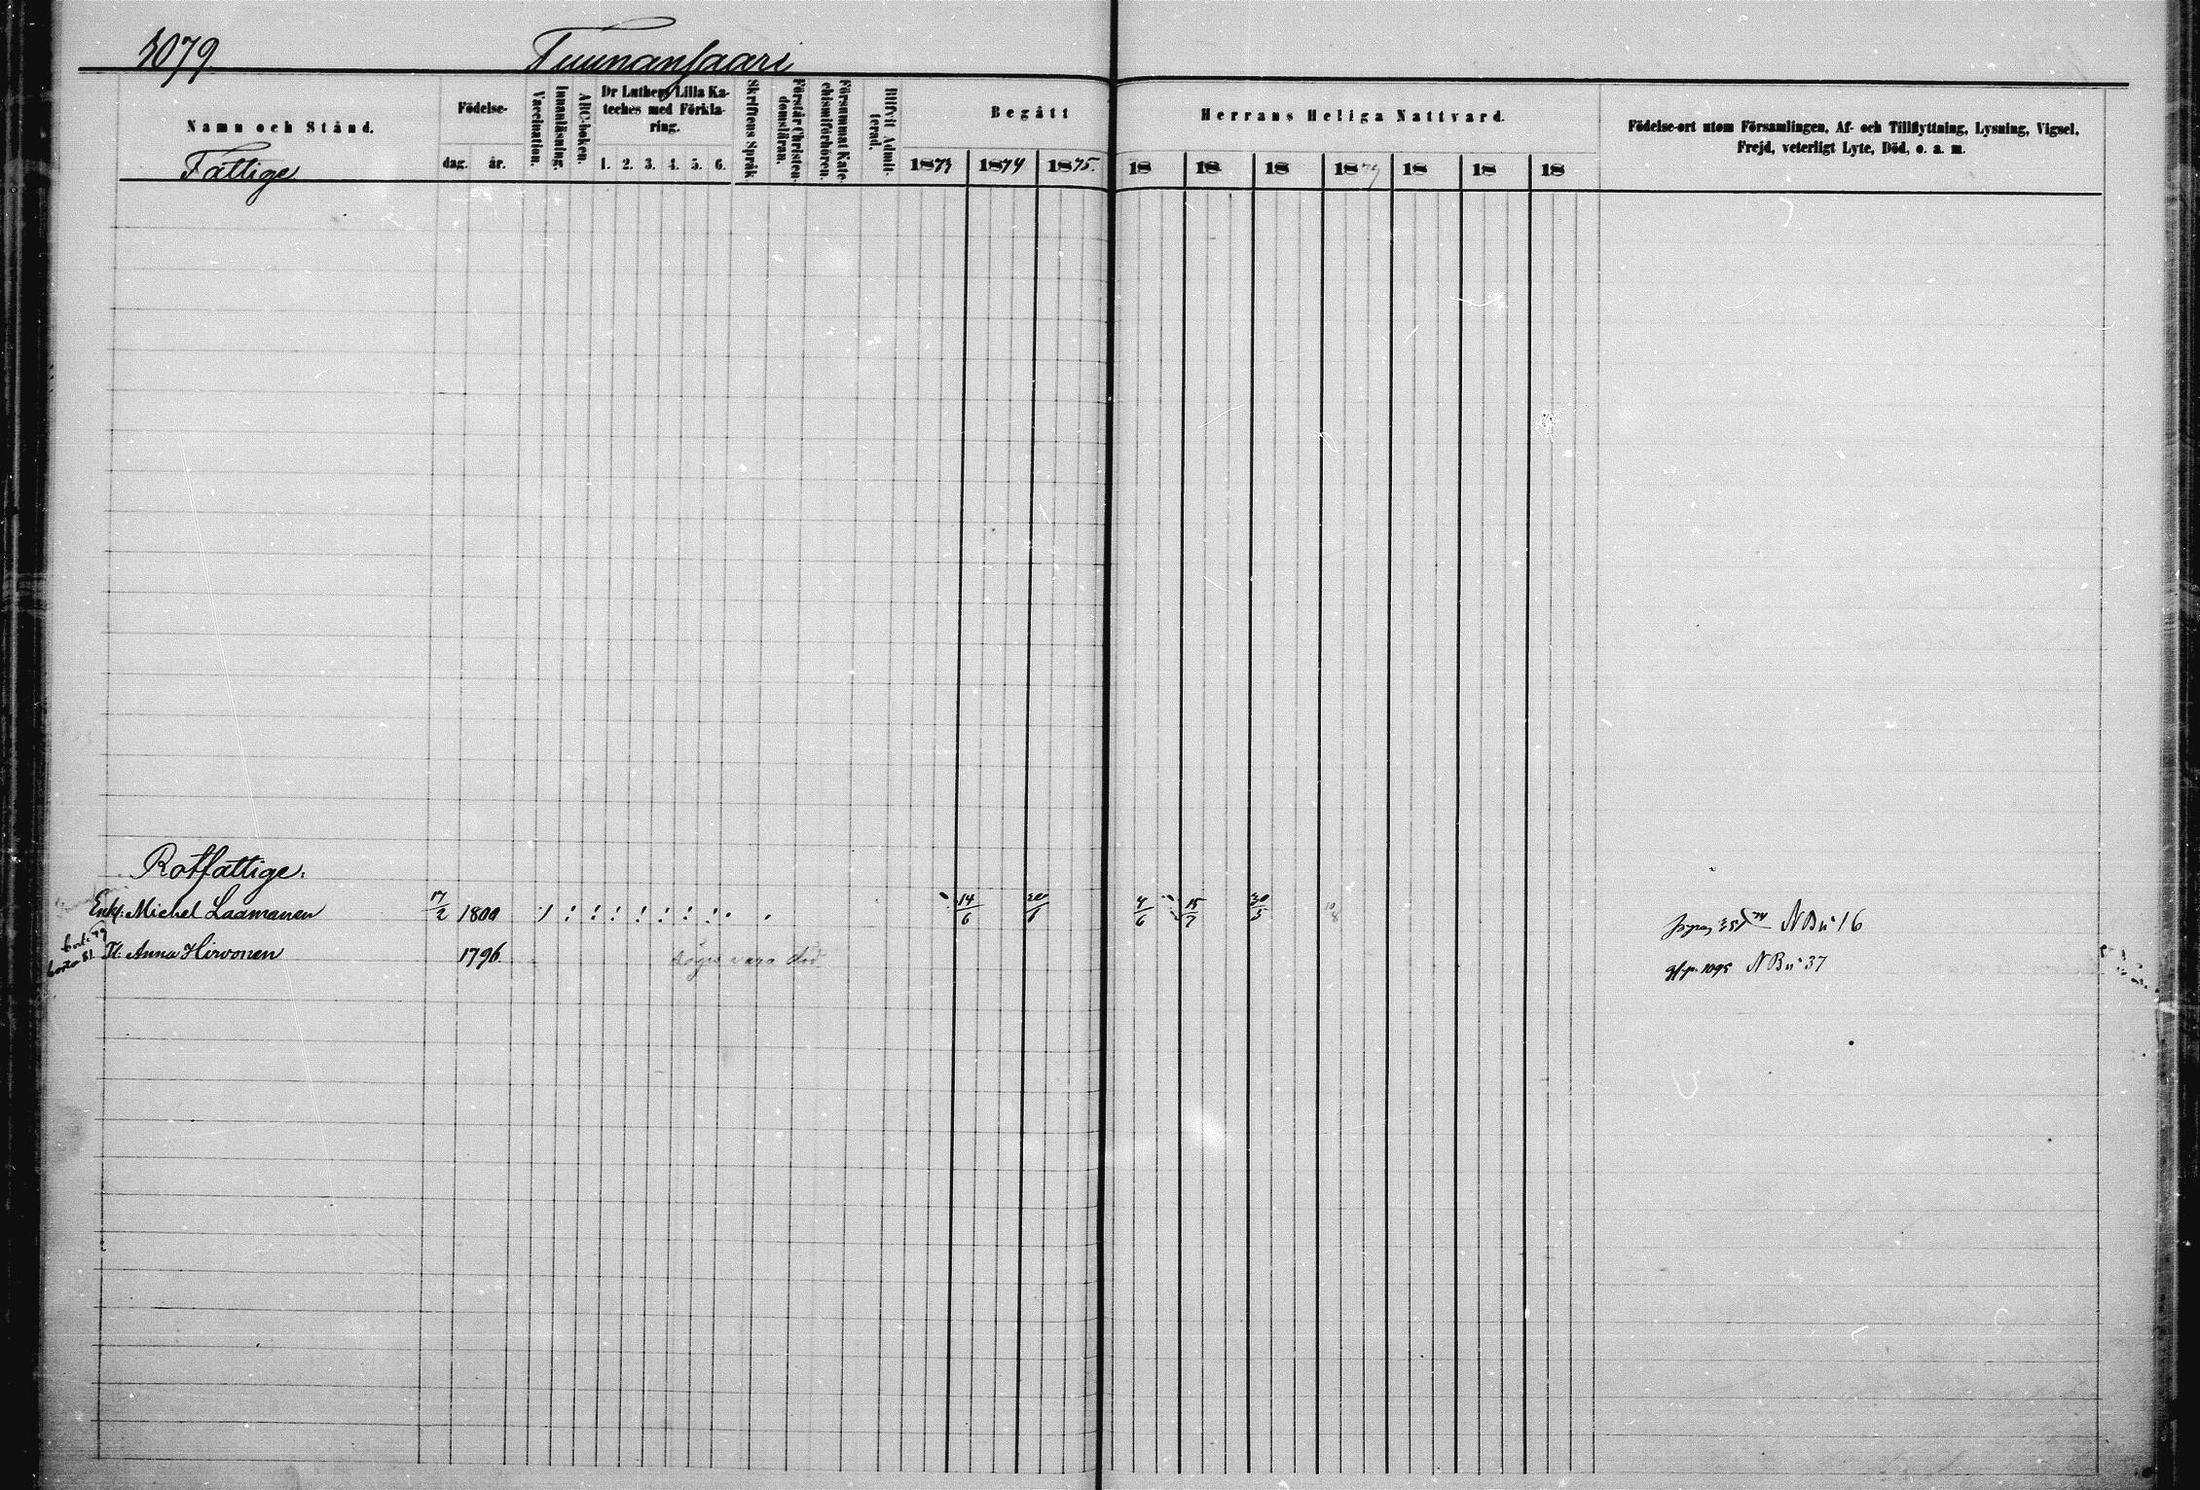 1079 Tuunansaari
Namn och Stånd.
Födelse-
dag. år.
Vaccination.
Innanläsning.
ABC-boken.
Dr Luthers Lilla Ka-
teches med Förkla-
ring.
1. 2. 3. 4. 5. 6.
Skriftens Språk.
Förstår Christen-
domsläran.
Försummat Kate-
chismiförhören.
Blifvit Admit-
terad.
Begått Herrans Heliga Nattvard.
1873 1874 1875. 18 18 18 1879 18 18 18
Födelse-ort utom Församlingen, Af- och Tillflyttning, Lysning, Vigsel,
Frejd, veterligt Lyte, Död, o. a. m.
Fattige
Rotfattige.
Enkl: Michel Laamanen 17/2 1800 14/6 4/6 15/7 30/5 10/8 N Bu 16
Anna Hirvonen 1796. säges vara död 1095 N Bu 37